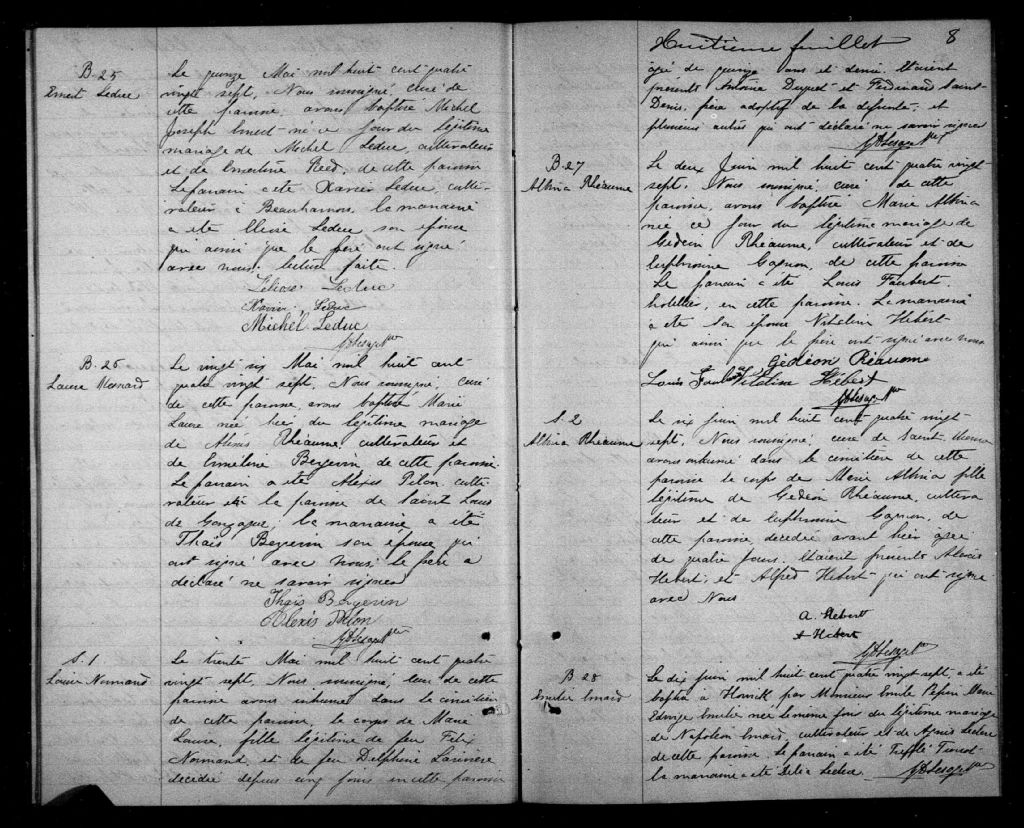 B. 25
Ernest Leduc
Le quinze Mai mil huit cent quatre
vingt sept, Nous soussigné, curé de
cette paroisse, avons baptisé Michel
Joseph Ernest né ce jour du légitime
mariage de Michel Leduc, cultivateur
et de Emertine Reed, de cette paroisse
Le parrain a été Xavier Leduc, culti-
vateur à Beauharnois, la marraine
a été Leduc son épouse
qui ainsi que le père ont signé
avec nous. Lecture faite.
Leduc
Xavier Leduc
Michel Leduc
B. 26
Laura
Le vingt six Mai mil huit cent
quatre vingt sept, Nous soussigné, curé
de cette paroisse, avons baptisé Marie
Laura née hier du légitime mariage
de Alexis Rhéaume, cultivateur et
de Emeline Bergevin de cette paroisse
Le parrain a été Alexis Pilon culti-
vateur de la paroisse de Saint Louis
de Gonzague, la marraine a été
Thaïs Bergevin son épouse qui
ont signé avec nous, le père a
déclaré ne savoir signer
Thaïs Bergevin
Alexis Pilon
S. 1
Laura Normand
Le trente Mai mil huit cent quatre
vingt sept, Nous soussigné, curé de cette
paroisse avons inhumé dans le cimetière
de cette paroisse, le corps de Marie
Laura, fille légitime de feu Félix
Normand, et de feu Delphine Larivière
décédée depuis cinq jours en cette paroisse
Huitième feuillet 8
âgée de quinze ans et demie. Etaient
présents Antoine et Ferdinand Saint-
Denis, père adoptif de la défunte, et
plusieurs autres qui ont déclaré ne savoir signer
B. 27
Albina Rhéaume
Le deux Juin mil huit cent quatre vingt
sept, Nous soussigné, curé de cette
paroisse, avons baptisé Marie Albina
née ce jour du légitime mariage de
Gédéon Rhéaume, cultivateur et de
Euphrosine Gagnon, de cette paroisse
Le parrain a été Louis Faubert
hotellier, en cette paroisse. La marraine
a été son épouse Hébert
qui ainsi que le père ont signé avec nous
Gédéon Réaume
Louis Hébert
S. 2
Albina Rhéaume
Le six Juin mil huit cent quatre vingt
sept, Nous soussigné, curé de Saint-Etienne
avons inhumé dans le cimetière de cette
paroisse le corps de Marie Albina fille
légitime de Gédéon Rhéaume, cultiva
teur et de Euphrosine Gagnon, de
cette paroisse, décédée avant hier âgée
de quatre jours. Etaient présents
Hébert, et Alfred Hébert qui ont signé
avec Nous
A. Hebert
Hébert
B 28
Emélie Emard
Le dix Juin mil huit cent quatre vingt sept, a été
baptisée à Howick par Monsieur Emile Pepin Marie
Edwige Emélie née le même jour du légitime mariage
de Napoléon Emard, cultivateur et de Agnès Leclerc
de cette paroisse. Le parrain a été
la marraine a été Délia Leclerc.